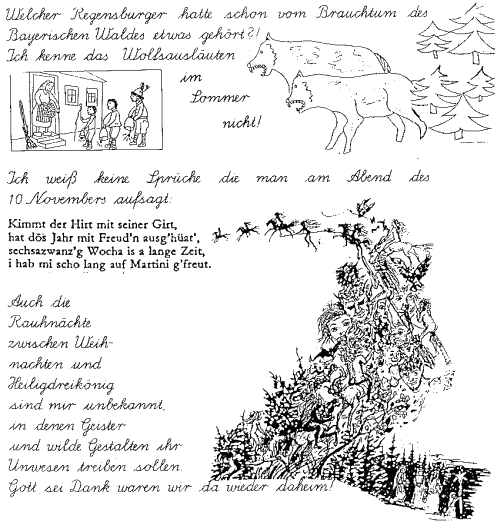 Welcher Regensburger hatte schon vom Brauchtum des
Bayerischen Waldes etwas gehört?!
Ich kenne das Wolfsausläuten
im
Sommer
nicht!
Ich weiß keine Sprüche die man am Abend des
10 Novembers aufsagt:
Kimmt der Hirt mit seiner Girt,
hat dös Jahr mit Freud'n ausg'hüat',
sechsazwanz'g Wocha is a lange Zeit,
i hab mi scho lang auf Martini g'freut.
Auch die
Rauhnächte
zwischen Weih-
nachten und
Heiligdreikönig
sind mir unbekannt,
in denen Geister
und wilde Gestalten ihr
Unwesen treiben sollen.
Gott sei Dank waren wir da wieder daheim!